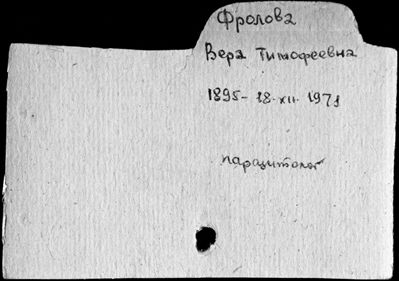 Фролова
Вера Тимофеевна
1895- 18.XII. 1971
паразитолог